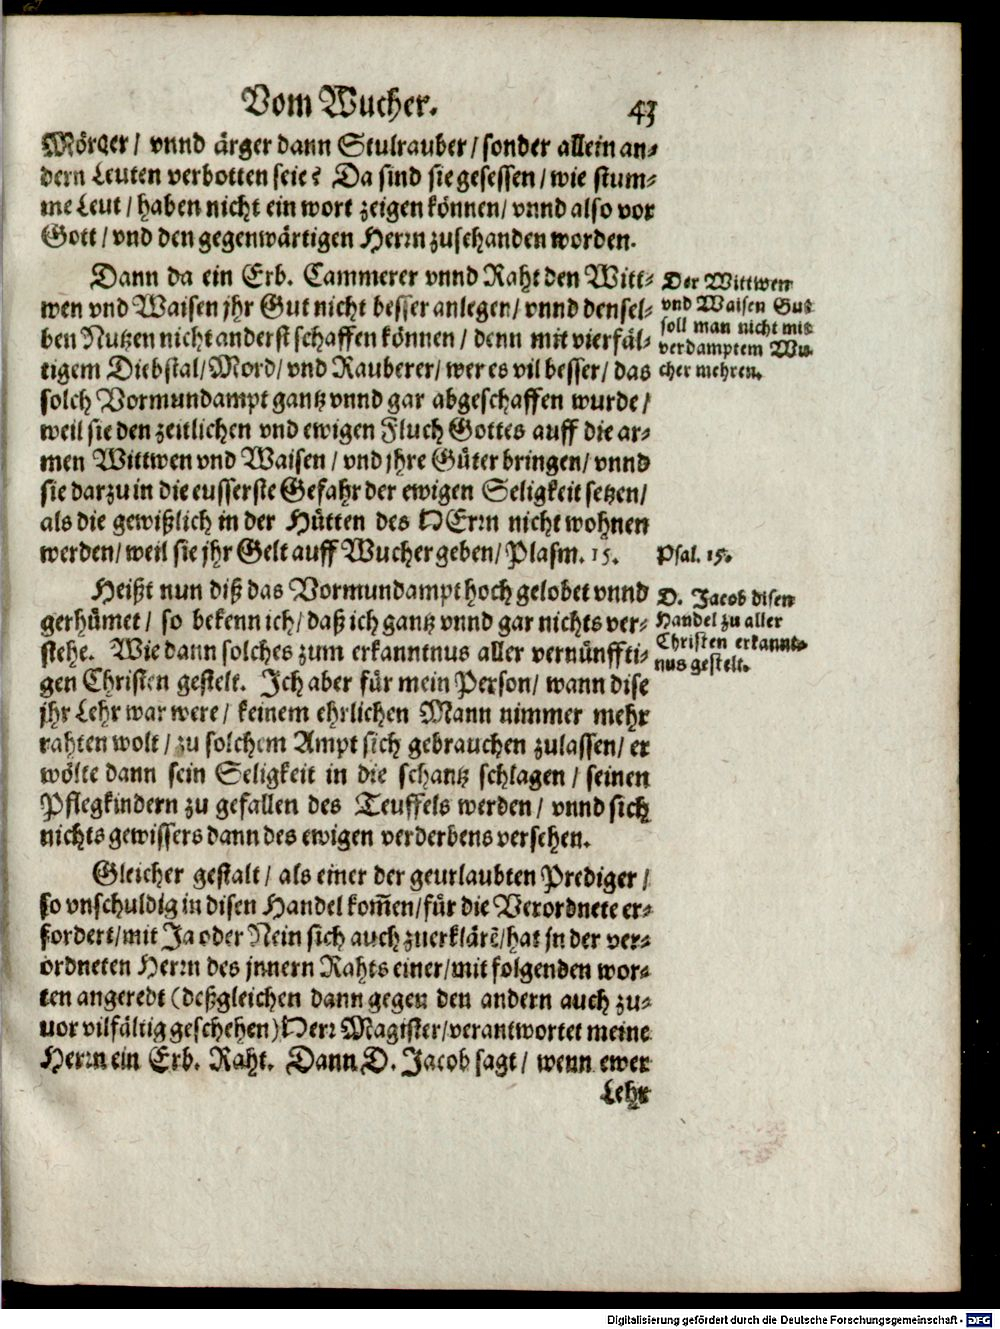 Vom Wucher. 43
Mörder/ vnnd ärger dann Stulrauber/ sonder allein an-
dern Leuten verbotten seie? Da sind sie gesessen/ wie stum-
me Leut/ haben nicht ein wort zeigen können/ vnnd also vor
Gott/ vnd den gegenwärtigen Herrn zuschanden worden.
Dann da ein Erb. Cammerer vnnd Raht den Witt-
wen vnd Waisen jhr Gut nicht besser anlegen/ vnnd densel-
ben Nutzen nicht anderst schaffen können/ denn mit vierfäl-
tigem Diebstal/ Mord/ vnd Rauberer/ wer es vil besser/ das
solch Vormundampt gantz vnnd gar abgeschaffen wurde/
weil sie den zeitlichen vnd ewigen Fluch Gottes auff die ar-
men Wittwen vnd Waisen/ vnd jhre Güter bringen/ vnnd
sie darzu in die eusserste Gefahr der ewigen Seligkeit setzen/
als die gewißlich in der Hütten des HErrn nicht wohnen
werden/ weil sie jhr Gelt auff Wucher geben/ Plasm. 15.
Der Wittwen
vnd Waisen Gut
soll man nicht mit
verdamptem Wu-
cher mehren.
Psal. 15.
Heißt nun diß das Vormundampt hoch gelobet vnnd
gerhümet/ so bekenn ich/ daß ich gantz vnnd gar nichts ver-
stehe. Wie dann solches zum erkanntnus aller vernünffti-
gen Christen gestelt. Ich aber für mein Person/ wann dise
jhr Lehr war were/ keinem ehrlichen Mann nimmer mehr
rahten wolt/ zu solchem Ampt sich gebrauchen zulassen/ er
wölte dann sein Seligkeit in die schantz schlagen/ seinen
Pflegkindern zu gefallen des Teuffels werden/ vnnd sich
nichts gewissers dann des ewigen verderbens versehen.
D. Jacob disen
Handel zu aller
Christen erkannt-
nus gestelt.
Gleicher gestalt/ als einer der geurlaubten Prediger/
so vnschuldig in disen Handel kom̃en/ für die Verordnete er-
fordert/ mit Ja oder Nein sich auch zuerklärẽ/ hat jn der ver-
ordneten Herrn des jnnern Rahts einer/ mit folgenden wor-
ten angeredt (deßgleichen dann gegen den andern auch zu-
uor vilfältig geschehen) Herr Magister/ verantwortet meine
Herrn ein Erb. Raht. Dann D. Jacob sagt/ wenn ewer
Lehr
Digitalisierung gefördert durch die Deutsche Forschungsgemeinschaft - DFG